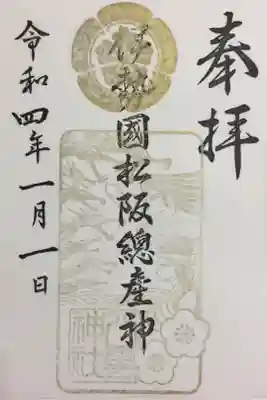 奉拝
伊勢國松阪總産神
令和四年一月一日